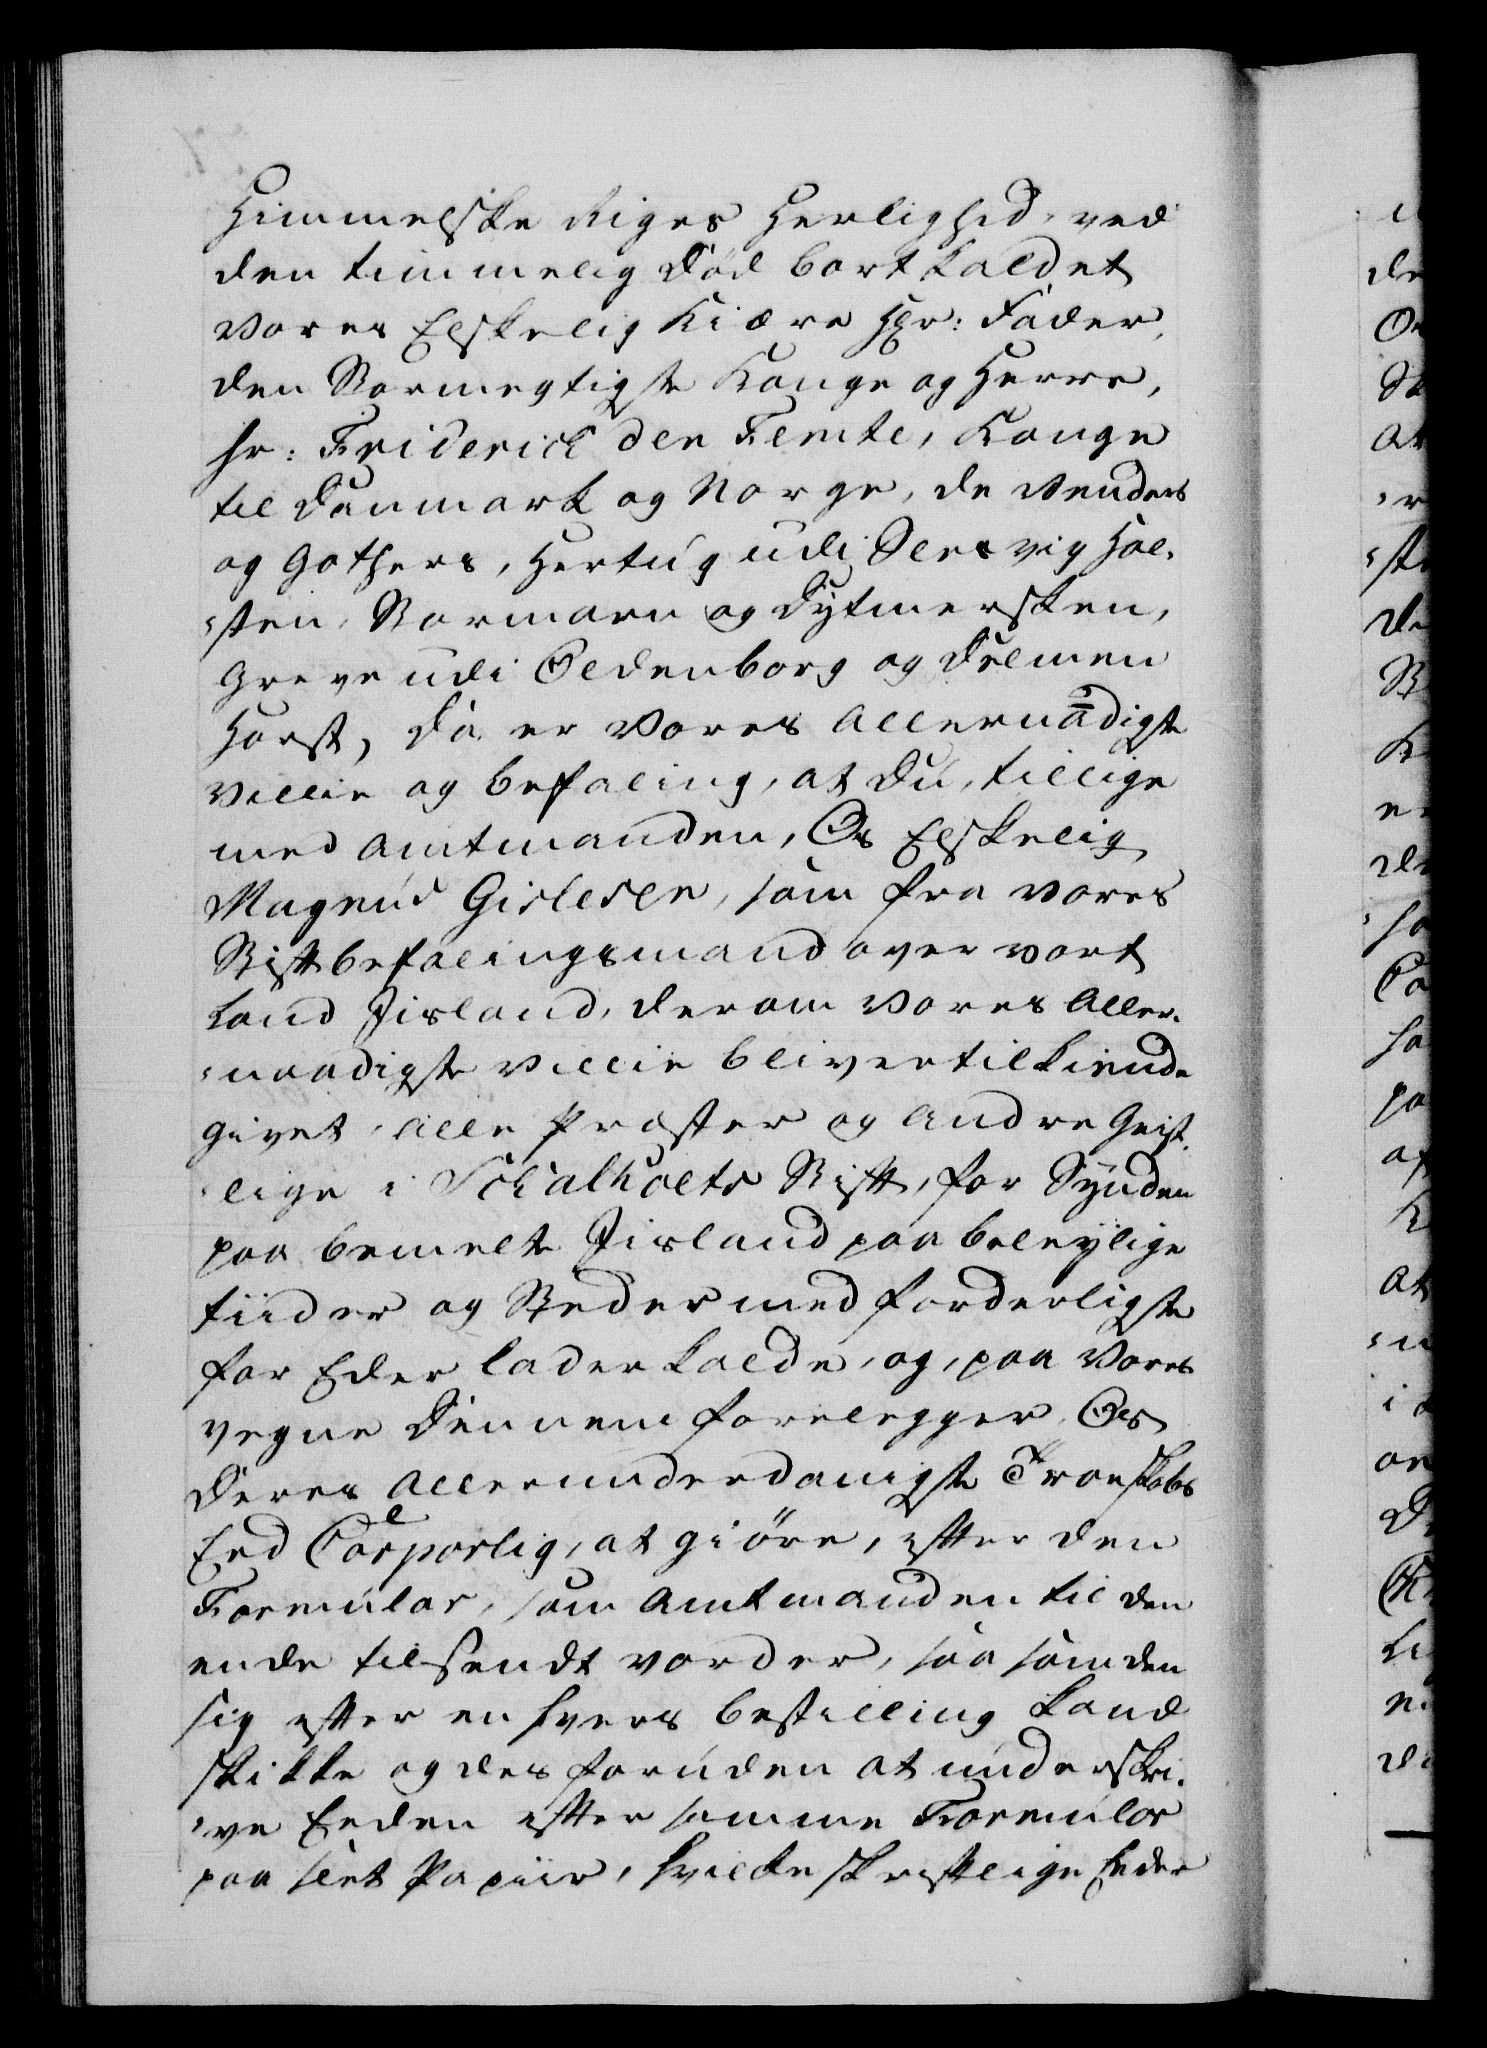 Himmelske Riges Herlighed, ved
den timmelig Død bortkaldet
vores Elskelig Kiære Hr: Fader,
den Stormegtigste Konge og Herre,
hr: Friderich den Femte, Konge
til Danmark og Norge, de Venders
og Gothers, Hertug udi Slesvig Hol-
-sten, Stormarn og Dytmersken,
Greve udi Oldenborg og Delmen
Horst, Da er Vores Allernaadigste
villie og befaling, at du, tillige
med Amtmanden, Os Elskelig
Magnus Gislesen, som fra vores
Stiftbefalingsmand over vort
Land Jisland, derom vores Aller-
-naadigste villie bliver tilkiende
givet, alle Præster og andre Geist-
-lige i Schalholts Stift, for Synden
paa bemelte Jisland paa beleylige
tiider og Steder med forderligste
for Eder lader kalde, og, paa Vores
vegne dennem forelegger, Os
Deres allerunderdanigste Troeskabs
Eed Corporlig, at giöre, efter den
Formular, som Amtmanden til den
ende tilsendt vorder, saa som den
sig efter en hvers bestilling kand
skikke og des foruden at underskri-
-ve Eeden efter samme Formular
paa slet Papiir, hvilke skriftlige Eeder